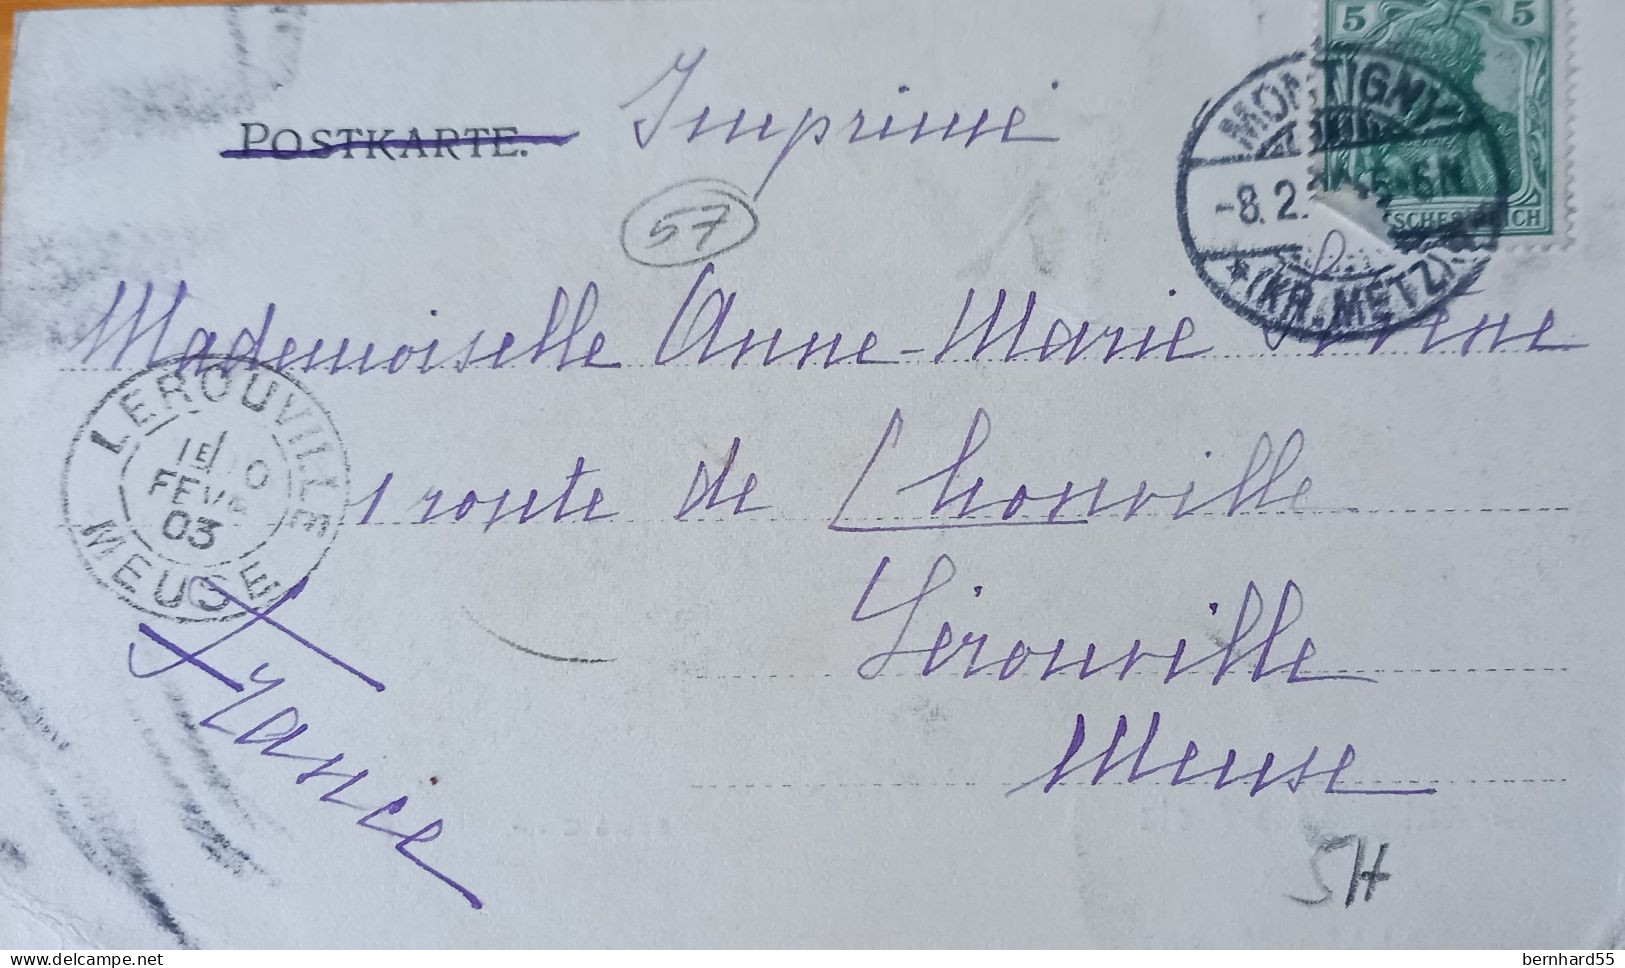 5 5
POSTKARTE. Imprimé
MONTIGNY
-8.2. 5-6N
*(KR. METZ)
REICH
57
Mademoiselle Anne-Marie
LEROUVILLE
10
FEVR
03
MEUSE
1 route de Chonville
Lérouville
Meuse
France
delcampe.net
bernhard55